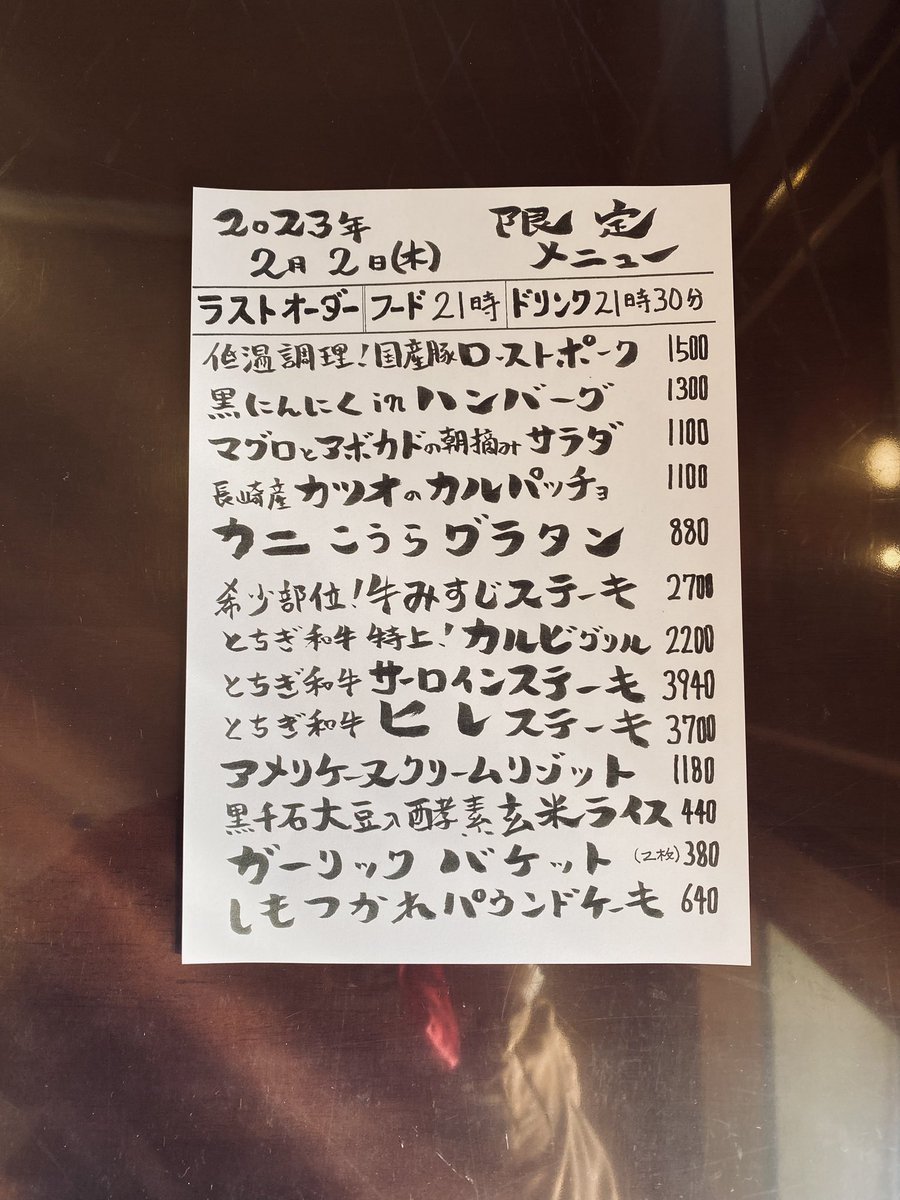 2023年 限定
2月2日(木) メニュー
ラストオーダー フード21時 ドリンク21時30分
低温調理!国産豚ローストポーク 1500
黒にんにくinハンバーグ 1300
マグロとアボカドの朝摘みサラダ 1100
長崎産カツオのカルパッチョ 1100
カニこうらグラタン 880
希少部位!牛みすじステーキ 2700
とちぎ和牛特上!カルビグリル 2200
とちぎ和牛サーロインステーキ 3940
とちぎ和牛ヒレステーキ 3700
アメリケーヌクリームリゾット 1180
黒千石大豆入酵素玄米ライス 440
ガーリックバケット (2枚) 380
しもつかれパウンドケーキ 640